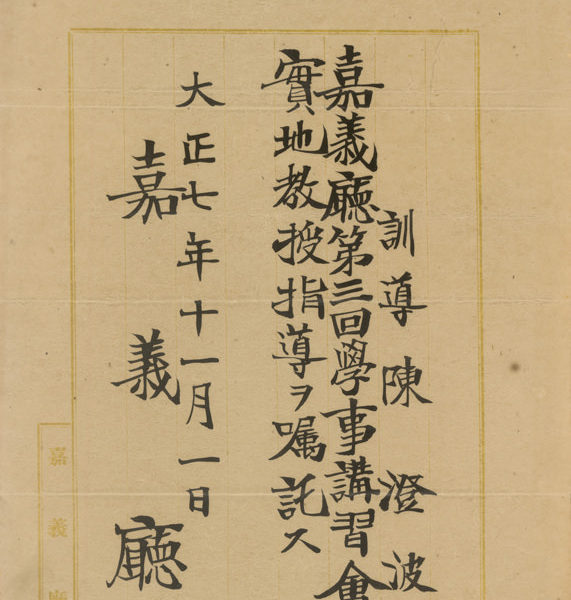 訓導 陳澄波
嘉義廳第三回學事講習會
實地教授指導ヲ嘱託ス
大正七年十一月一日
嘉義廳
嘉義廳